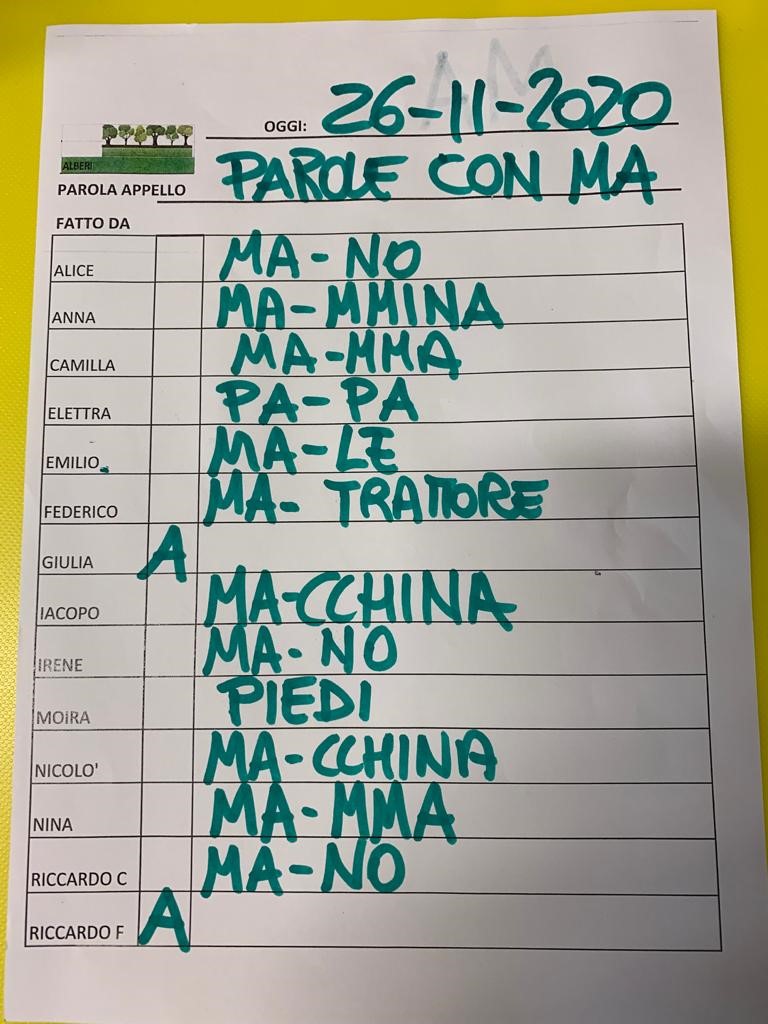 AM
OGGI: 26-11-2020
ALBERI
PAROLA APPELLO PAROLE CON MA
FATTO DA
ALICE MA-NO
ANNA MA-MMINA
CAMILLA MA-MMA
ELETTRA PA-PA
EMILIO MA-LE
FEDERICO MA- TRATTORE
GIULIA A
IACOPO MA-CCHINA
IRENE MA-NO
MOIRA PIEDI
NICOLO' MA-CCHINA
NINA MA-MMA
RICCARDO C MA-NO
RICCARDO F A